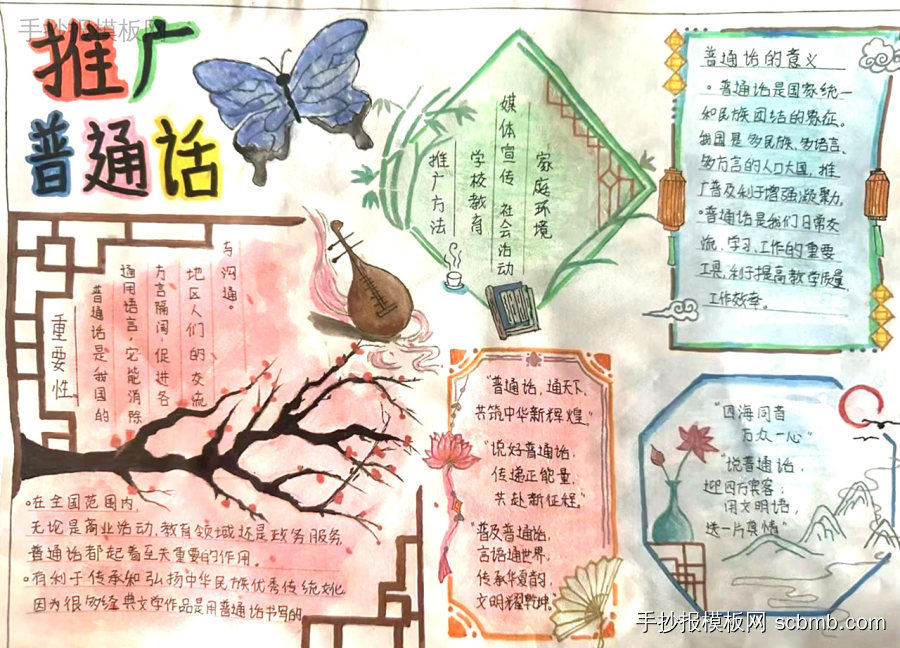 手抄报模板网
推广
普通话
推广方法
学校教育
媒体宣传 社会活动
家庭环境
普通话的意义
。普通话是国家统一
和民族团结的象征。
我国是多民族、多语言、
多方言的人口大国，推
广普及利于增强凝聚力。
•普通话是我们日常交
流、学习、工作的重要
工具，利于提高教学质量
工作效率。
重要性
普通话是我国的
通用语言，它能消除
方言隔阂，促进各
地区人们的交流
与沟通。
。在全国范围内，
无论是商业活动、教育领域还是政务服务
普通话都起着至关重要的作用。
。有利于传承和弘扬中华民族优秀传统文化
因为很多经典文学作品是用普通话书写的
"普通话，通天下，
共筑中华新辉煌。"
"说好普通话，
传递正能量，
共赴新征程。"
"普及普通话，
言语通世界；
传承华夏韵，
文明耀乾坤。"
"四海同音
万众一心"
"说普通话，
迎四方宾客；
用文明语，
送一片真情"
手抄报模板网 scbmb.com